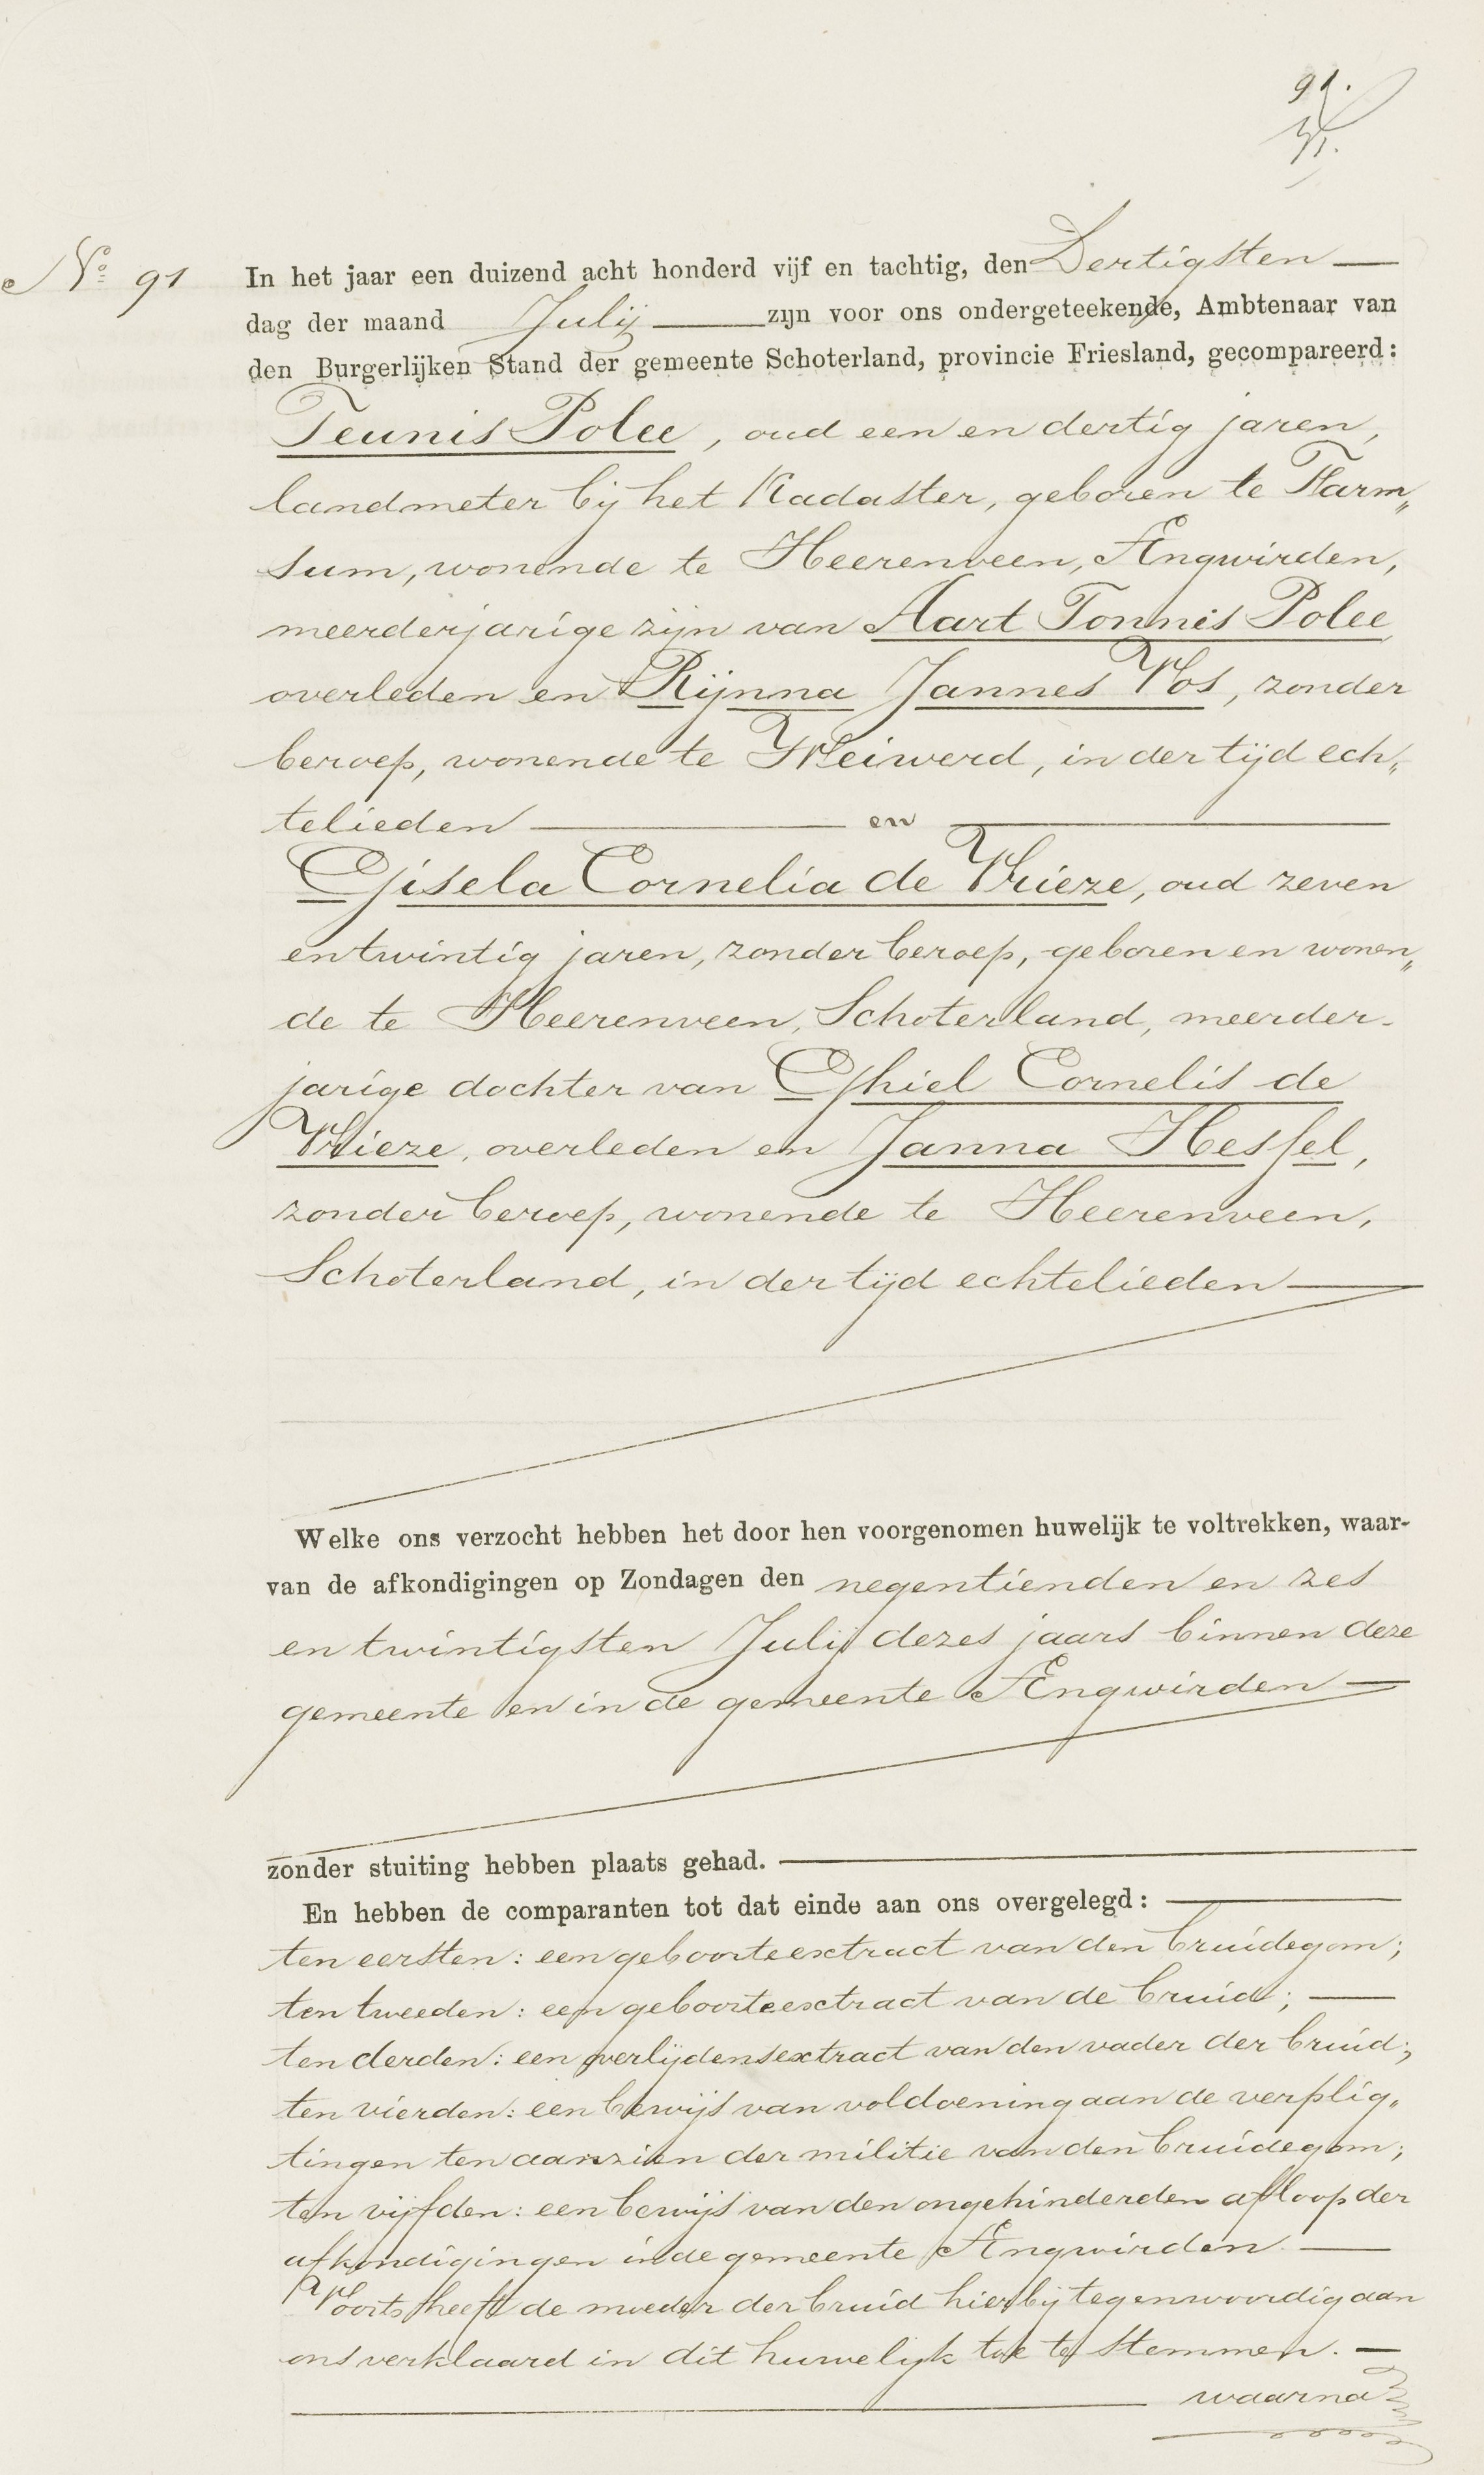 91.
Nº 91
In het jaar een duizend acht honderd vijf en tachtig, den Dertigsten
dag der maand Julij zijn voor ons ondergeteekende, Ambtenaar van
den Burgerlijken Stand der gemeente Schoterland, provincie Friesland, gecompareerd:
Teunis Polee, oud een en dertig jaren,
landmeter bij het Kadaster, geboren te Farm„
sum, wonende te Heerenveen, Ængwirden,
meerderjarige zijn van Aart Tonnis Polee
overleden en Rijnna Jannes Vos, zonder
beroep, wonende te Weiwerd, in der tijd ech„
telieden en
Gisela Cornelia de Vrieze, oud zeven
en twintig jaren, zonder beroep, geboren en wonen„
de te Heerenveen, Schoterland, meerder-
jarige dochter van Ghiel Cornelis de
Vrieze, overleden en Janna Hessel,
zonder beroep, wonende te Heerenveen,
Schoterland, in der tijd echtelieden
Welke ons verzocht hebben het door hen voorgenomen huwelijk te voltrekken, waar-
van de afkondigingen op Zondagen den negentienden en zes
en twintigsten Julij dezes jaars binnen deze
gemeente en in de gemeente Ængwirden
zonder stuiting hebben plaats gehad.
En hebben de comparanten tot dat einde aan ons overgelegd:
ten eersten: een geboorteextract van den bruidegom;
ten tweeden: een geboorteextract van de bruid;
ten derden: een overlijdensextract van den vader der bruid;
ten vierden: een bewijs van voldoening aan de verplig„
tingen ten aanzien der militie van den bruidegom;
ten vijfden: een bewijs van den ongehinderden afloop der
afkondigingen in de gemeente Ængwirden.
Voorts heeft de moeder der bruid hierbij tegenwoordig aan
ons verklaard in dit huwelijk toe te stemmen.
waarna